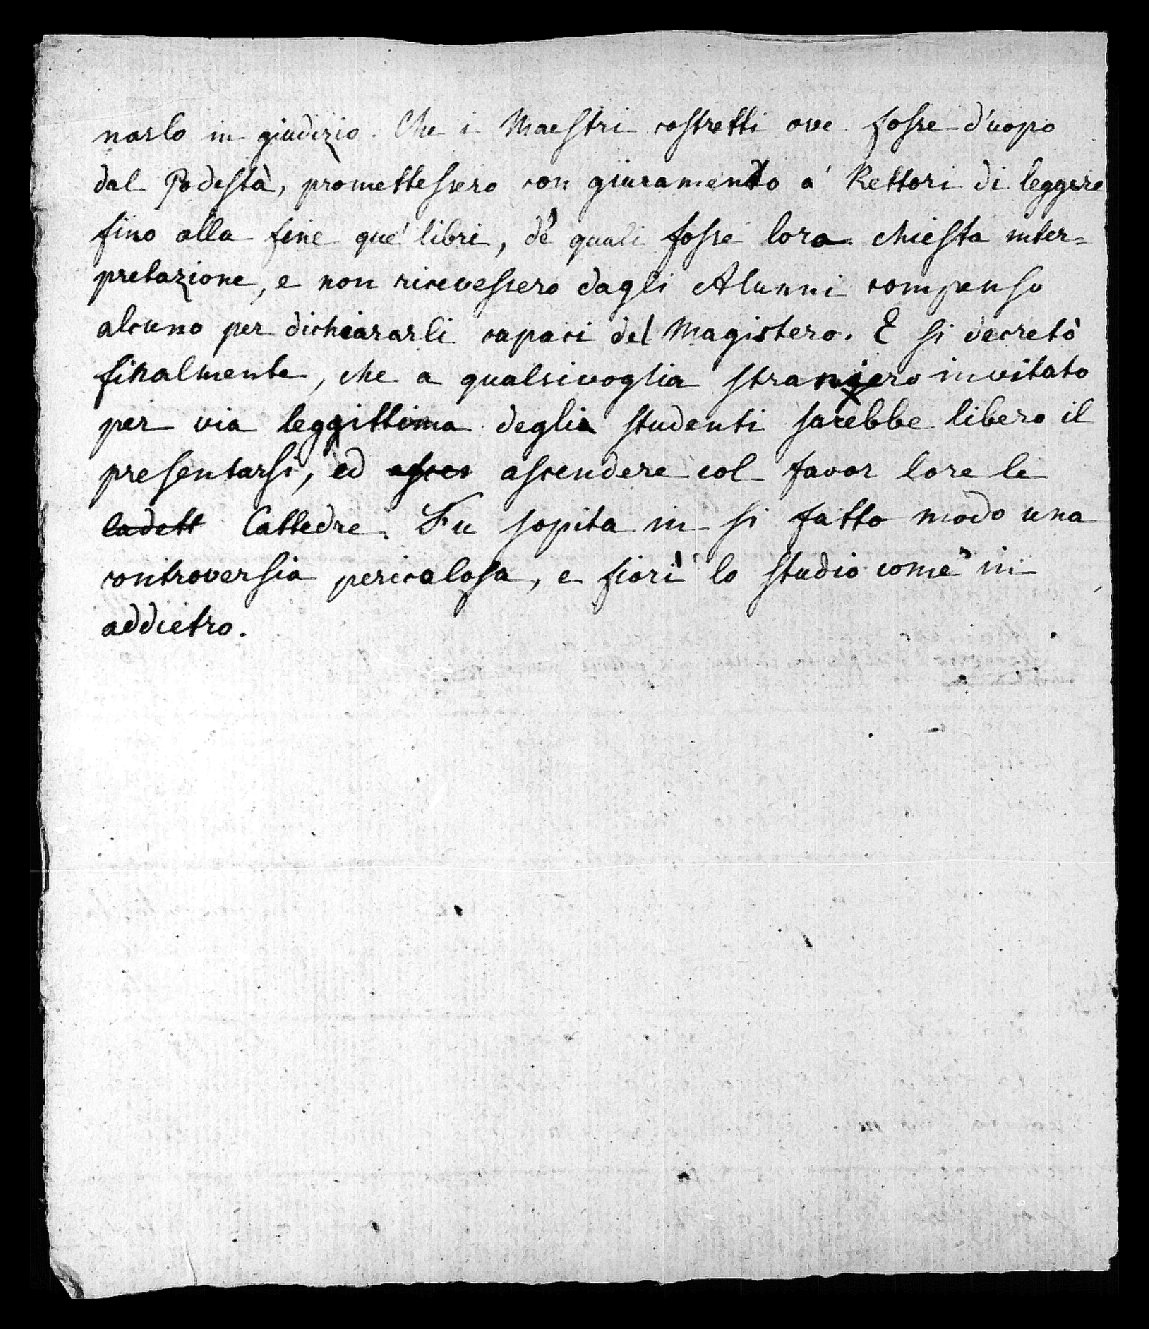 narlo in giudizio. Che i Maestri costretti ove fosse d'uopo
dal Podestà, promettessero con giuramento a' Rettori di leggere
fino alla fine que' libri, de' quali fosse loro chiesta inter=
pretazione, e non ricevessero dagli Alunni compenso
alcuno per dichiararli capaci del Magistero. E si decretò
finalmente, che a qualsivoglia straniero invitato
per via leggittima degli studenti sarebbe libero il
presentarsi, ed asces ascendere col favor loro le
cadett Cattedre. Fu sopita in si fatto modo una
controversia pericolosa, e fiorì lo studio come in
addietro.